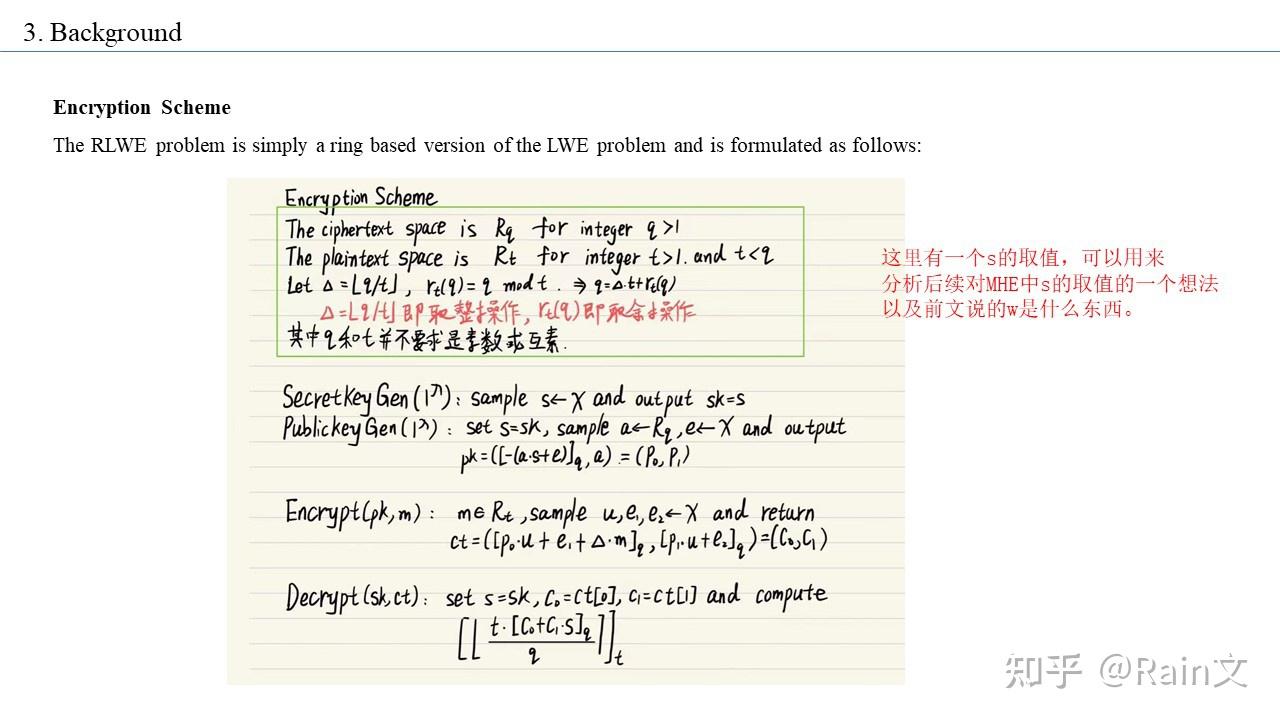 3. Background
Encryption Scheme
The RLWE problem is simply a ring based version of the LWE problem and is formulated as follows:
Encryption Scheme
The ciphertext space is Rq for integer q>1
The plaintext space is Rt for integer t>1. and t<q
Let Δ=⌊q/t⌋, rt(q)=q mod t. ⇒ q=Δ·t+rt(q)
Δ=⌊q/t⌋即取整操作, rt(q)即取余操作
其中q和t并不要求是素数或互素.
SecretKeyGen(1^λ): sample s←χ and output sk=s
PublickeyGen(1^λ): set s=sk, sample a←Rq, e←χ and output
pk=([-(a·s+e)]q, a) = (P0, P1)
Encrypt(pk,m): m∈Rt, sample u,e1,e2←χ and return
ct=([p0·u+e1+Δ·m]q, [p1·u+e2]q)=(C0,C1)
Decrypt(sk,ct): set s=sk, c0=ct[0], c1=ct[1] and compute
[⌊ t·[C0+C1·s]q / q ⌉]t
这里有一个s的取值，可以用来
分析后续对MHE中s的取值的一个想法
以及前文说的w是什么东西。
知乎 @Rain文